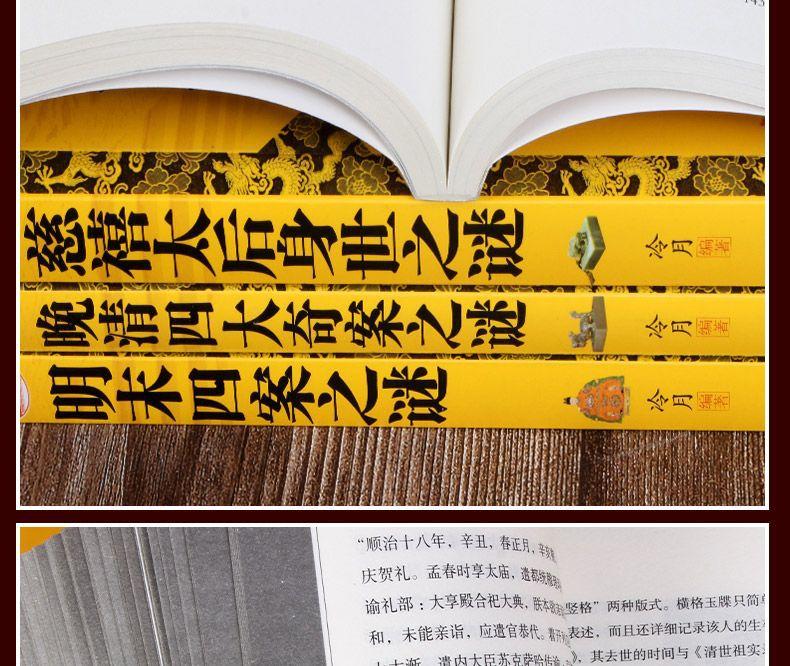 143
慈禧太后身世之谜 冷月 编著
晚清四大奇案之谜 冷月 编著
明末四案之谜 冷月 编著
“顺治十八年，辛丑，春正月，辛亥
庆贺礼。孟春时享太庙，遣都统
谕礼部：大享殿合祀大典，朕本
和，未能亲诣，应遣官恭代。着开
大渐，遣内大臣苏克萨哈传谕
竖格”两种版式。横格玉牒只简单
表述，而且还详细记录该人的生
》，其去世的时间与《清世祖实